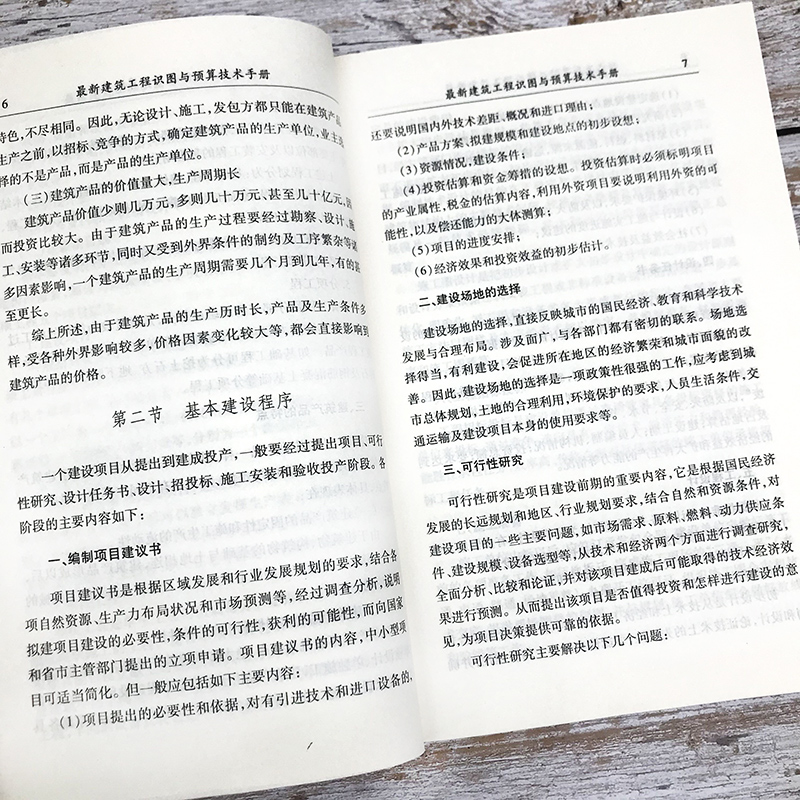 6
最新建筑工程识图与预算技术手册
特色,不尽相同。因此,无论设计、施工,发包方都只能在建筑产品
生产之前,以招标、竞争的方式,确定建筑产品的生产单位,业主选
择的不是产品,而是产品的生产单位。
(三)建筑产品的价值量大,生产周期长
建筑产品价值少则几万元,多则几十万元、甚至几十亿元,因
而投资比较大。由于建筑产品的生产过程要经过勘察、设计、施
工、安装等诸多环节,同时又受到外界条件的制约及工序繁杂等诸
多因素影响,一个建筑产品的生产周期需要几个月到几年,有的甚
至更长。
综上所述,由于建筑产品的生产历时长,产品及生产条件多
样,受各种外界影响较多,价格因素变化较大等,都会直接影响到
建筑产品的价格。
第二节 基本建设程序
一个建设项目从提出到建成投产,一般要经过提出项目、可行
性研究、设计任务书、设计、招投标、施工安装和验收投产阶段。各
阶段的主要内容如下:
一、编制项目建议书
项目建议书是根据区域发展和行业发展规划的要求,结合各
项自然资源、生产力布局状况和市场预测等,经过调查分析,说明
拟建项目建设的必要性,条件的可行性,获利的可能性,而向国家
和省市主管部门提出的立项申请。项目建议书的内容,中小型项
目可适当简化。但一般应包括如下主要内容:
(1)项目提出的必要性和依据,对有引进技术和进口设备的,
最新建筑工程识图与预算技术手册
7
还要说明国内外技术差距、概况和进口理由;
(2)产品方案、拟建规模和建设地点的初步设想;
(3)资源情况,建设条件;
(4)投资估算和资金筹措的设想。投资估算时必须标明项目
的产业属性,税金的估算内容,利用外资项目要说明利用外资的可
能性,以及偿还能力的大体测算;
(5)项目的进度安排;
(6)经济效果和投资效益的初步估计。
二、建设场地的选择
建设场地的选择,直接反映城市的国民经济、教育和科学技术
发展与合理布局。涉及面广,与各部门都有密切的联系。场地选
择得当,有利建设,会促进所在地区的经济繁荣和城市面貌的改
善。因此,建设场地的选择是一项政策性很强的工作,应考虑到城
市总体规划,土地的合理利用,环境保护的要求,人员生活条件,交
通运输及建设项目本身的使用要求等。
三、可行性研究
可行性研究是项目建设前期的重要内容,它是根据国民经济
发展的长远规划和地区、行业规划要求,结合自然和资源条件,对
建设项目的一些主要问题,如市场需求、原料、燃料、动力供应条
件、建设规模、设备选型等,从技术和经济两个方面进行调查研究,
全面分析、比较和论证,并对该项目建成后可能取得的技术经济效
果进行预测。从而提出该项目是否值得投资和怎样进行建设的意
见,为项目决策提供可靠的依据。
可行性研究主要解决以下几个问题: